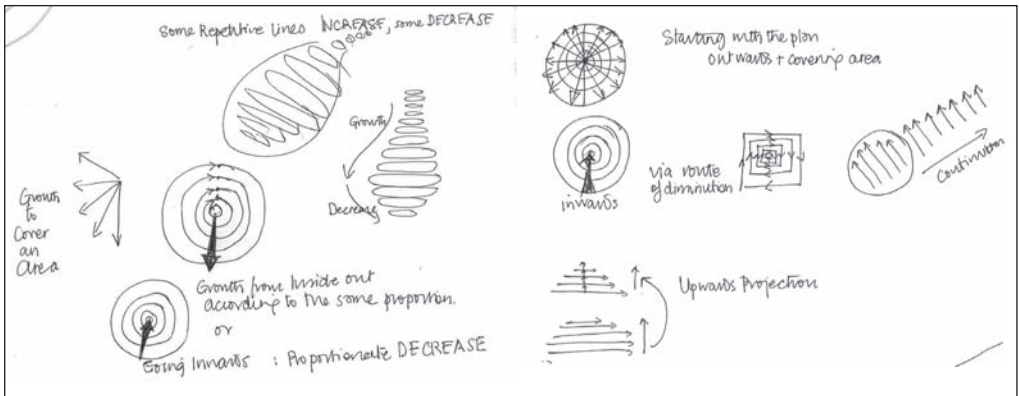 Some Repetitive Lines INCREASE, some DECREASE
Growth
Decrease
Growth
to
Cover
an
Area
Growth from Inside out
according to the same proportion.
or
Going Inwards : Proportionate DECREASE
Starting with the plan
outwards + covering area
inwards
via route
of diminution
Continuation
Upwards Projection